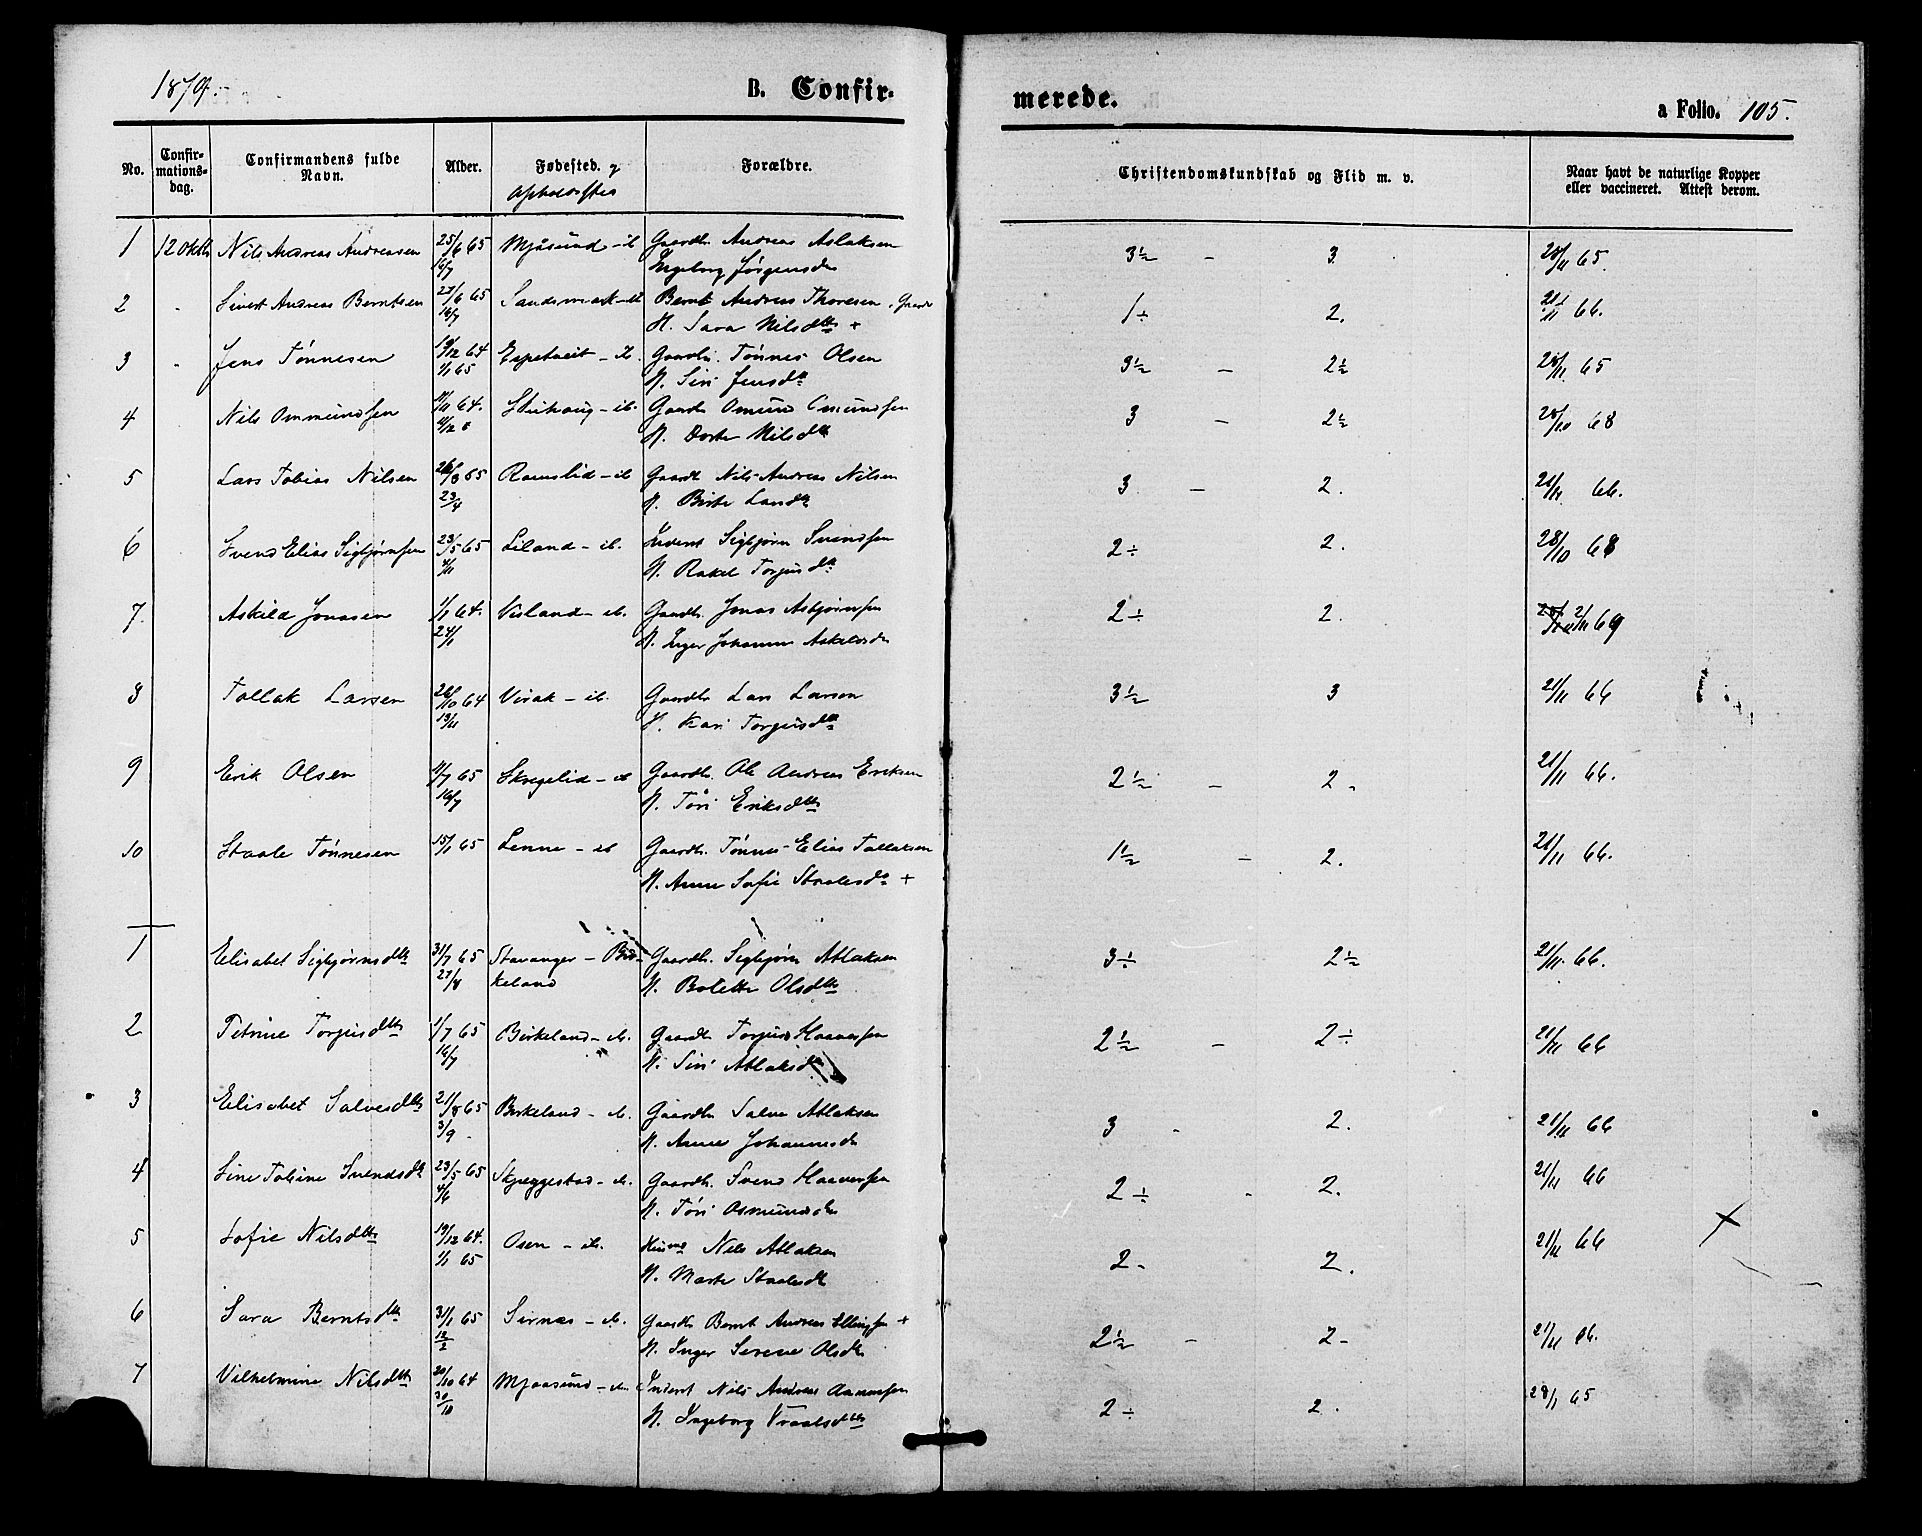 1879.
B. Confir-
merede.
a Folio. 105.
No.
Confir-
mations-
dag.
Confirmandens fulde
Navn.
Alder.
Fødested. og
Opholdssted
Forældre.
Christendomskundskab og Flid m. v.
Naar havt de naturlige Kopper
eller vaccineret. Attest derom.
1 12 Oktb Nils Andreas Andreassen 25/6 65 Mjåsund - ib Gaardb. Andreas Aslaksen 3½ - 3 65.
16/7 Ingeborg Jørgensdr
2 Sivert Andreas Berntsen 27/6 65 Sandsmark - ib Bernt Andreas Thoresen, Gaardb 1÷ 2. 21/11 66.
16/7 H. Sara Nilsdtr +
3 Jens Tønnesen 19/12 64 Espetveit - ib. Gaardb. Tønnes Olsen 3½ - 2½ 65
1/1 65 H. Siri Jensdr
4 Nils Ommundsen 11/11 64. - ib. Gaardb Omund Omundsen 3 - 2½ 28/10 68
H. Dorte Nilsdtr
5 Lars Tobias Nilsen 65 Ramslid - ib Gaardb Nils Andreas Nilsen 3 - 2. 21/11 66.
23/4 H. Birte Larsdtr
6 Svend Elias Sigbjørnsen 23/5 65 Liland - ib. Inderst Sigbjørn Svendsen 2÷ 2. 28/10 68
H. Rakel Torgusdtr
7. Askild Jonasen 1/1 64. Visland - ib. Gaardb. Jonas Asbjørnsen 2÷ 2. 2/11 69
24/1 H. Inger Johanne Askildsdr
8 Tollak Larsen 26/10 64 Virak - ib. Gaardb Lars Larsen 3½ 3 21/11 66
13/11 H. Kari Torgusdtr
9 Erik Olsen 11/7 65 Skregelid - ib Gaardb. Ole Andreas Eriksen 2½ - 2. 21/11 66.
16/7 H. Tøri Eriksdtr
10 Staale Tønnesen 15/1 65 Lenne - ib Gaardb. Tønnes Elias Tallaksen 1½ - 2. 21/11 66.
H. Anne Sofie Staalesdr +
1 Elisabet Sigbjørnsdtr 31/7 65 Stavanger - Bir- Gaardb. Sigbjørn Atlaksen 3÷ 2½ 21/11. 66.
27/8 keland H. Bolette Olsdtr
2 Petrine Torgusdtr 1/7 65 Birkeland - ib. Gaardb Torgius Haavarsen 2½ - 2÷ 21/11 66
16/7 H. Siri Atlaksdtr
3 Elisabet Salvesdtr 21/8 65 Birkeland - ib. Gaardb Salve Atlaksen 3 - 2. 21/11 66
3/9 H. Anne Johannesdr
4 Sine Tobine Svendsdtr 23/5 65 Skjeggestad - ib. Gaardb. Svend Haavorsen 2÷ - 2. 21/11 66
4/6 H. Tøri Osmundsdr
5 Sofie Nilsdtr 19/12 64. Osen - ib. Nils Atlaksen 2- 2. 21/11 66
1/1 65 H. Marte Staalesdtr
6 Sara Berntsdtr 31/1 65 Sirnes - ib. Gaardb Bernt Andreas Ellingsen + 2½ - 2- 21/11 66.
12/2 H. Inger Serene Olsdtr
7 Vilhelmine Nilsdtr 20/10 64 Mjaasund - ib. Inderst Nils Andreas Aanensen 2÷ 2. 28/1 65
30/10 H. Ingeborg Vraalsdtr